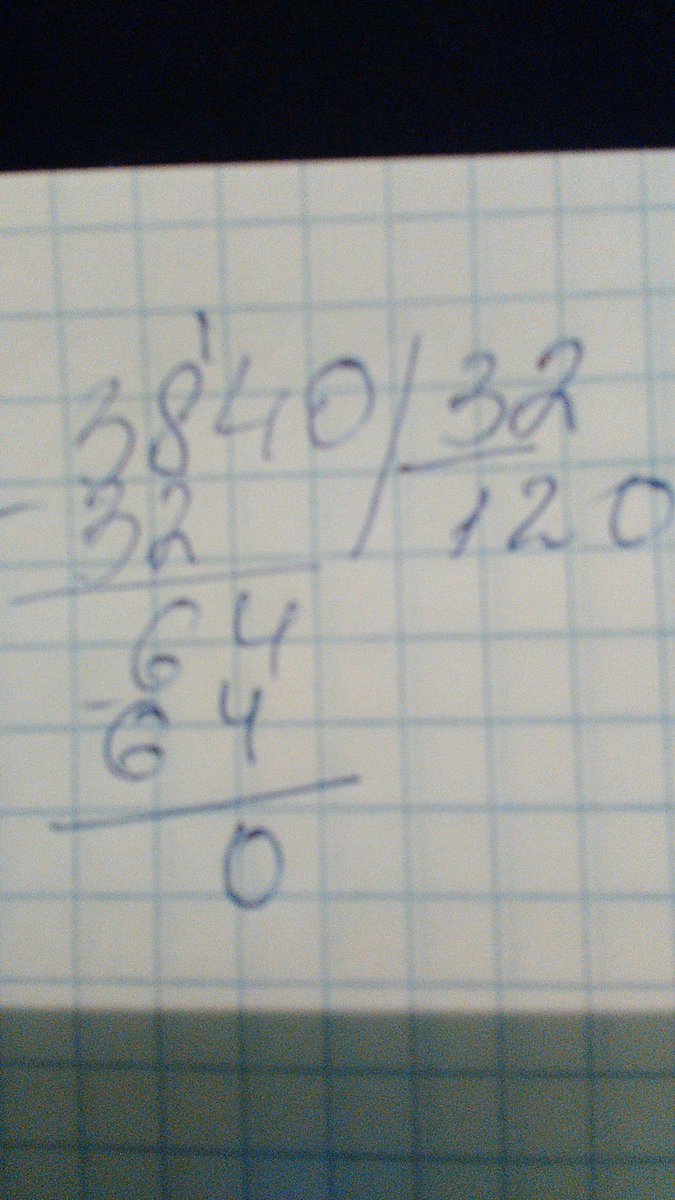 3840 32
- 32 120
64
- 64
0